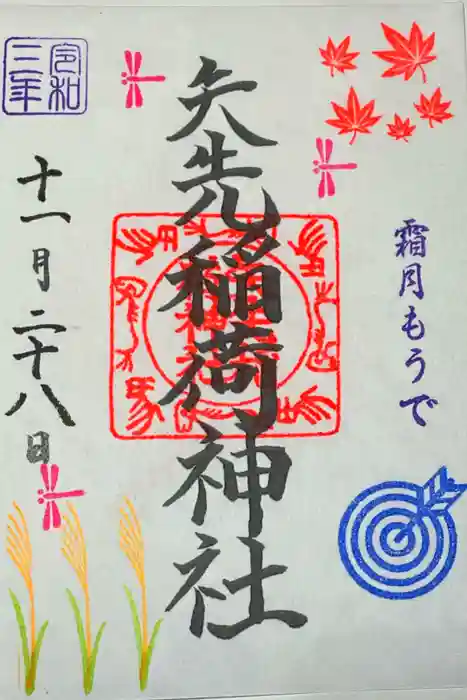 霜月もうで
矢先稲荷神社
令和
三年
十一月二十八日